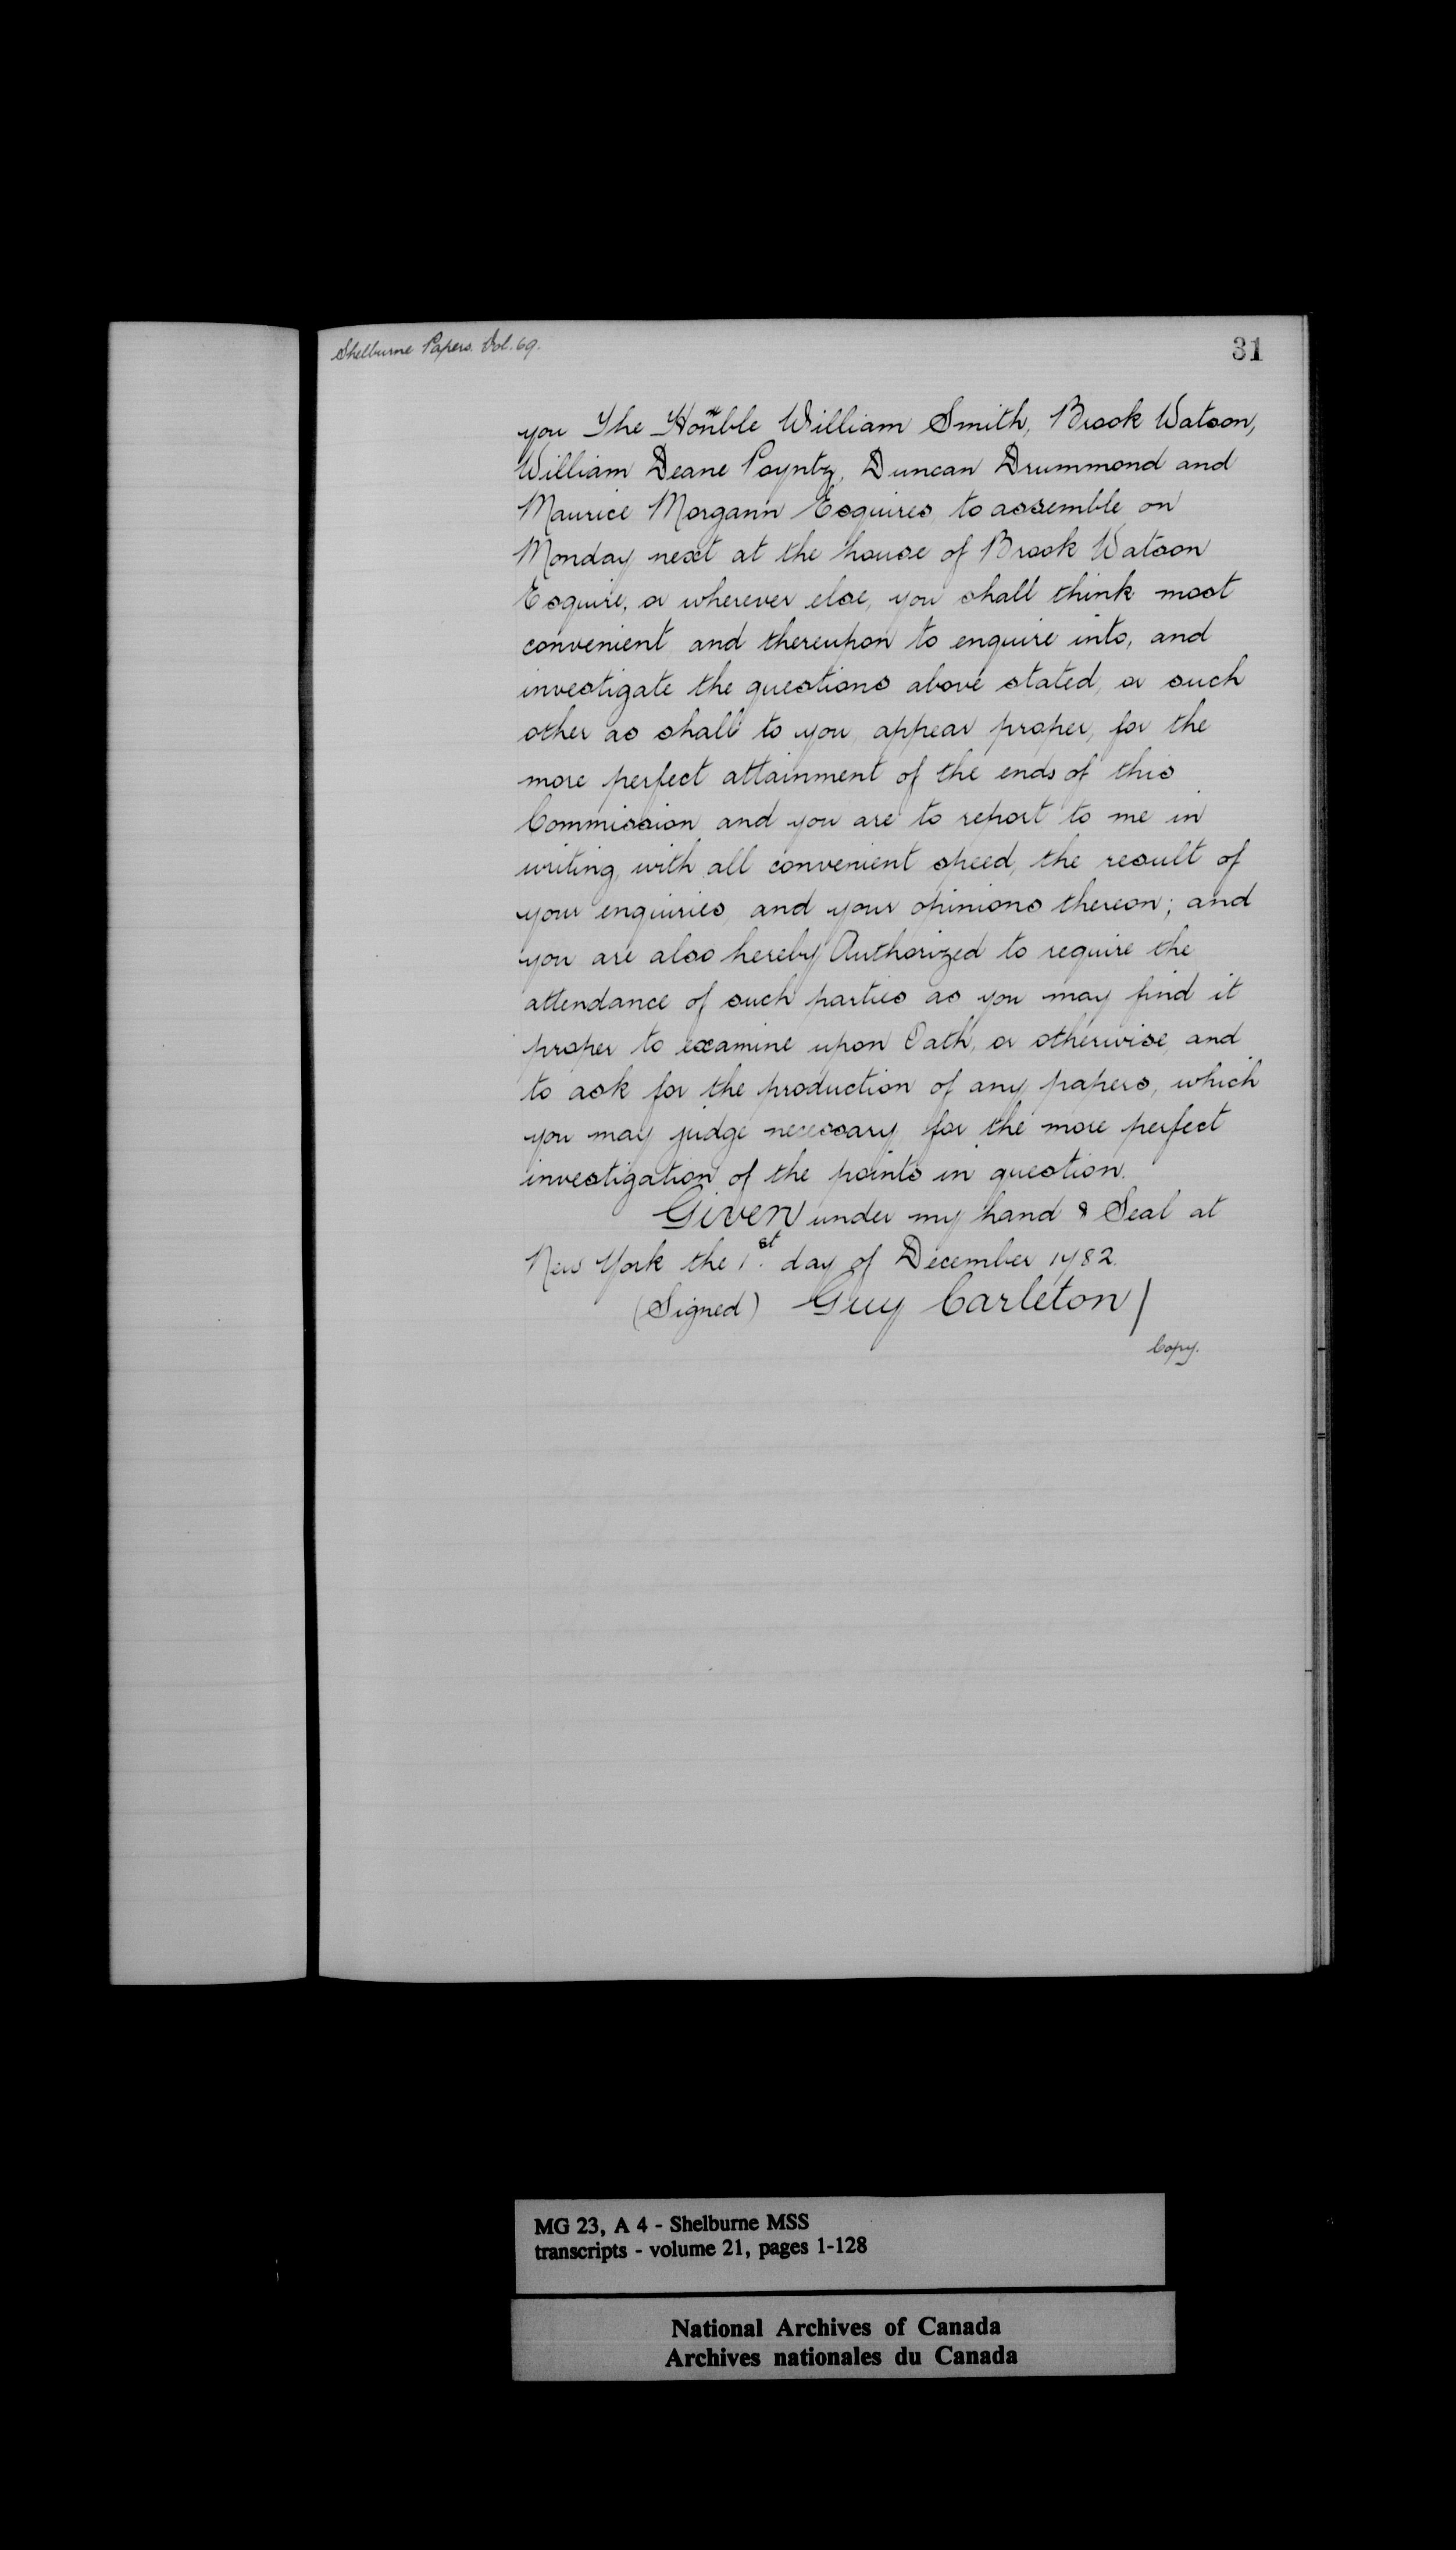 Shelburne Papers. Vol. 69.
31
you The Honble William Smith, Brook Watson,
William Deane Poyntz, Duncan Drummond and
Maurice Morgann Esquires, to assemble on
Monday next at the house of Brook Watson
Esquire, or wherever else, you shall think most
convenient and thereupon to enquire into, and
investigate the questions above stated, or such
other as shall to you, appear proper, for the
more perfect attainment of the ends of this
Commission and you are to report to me in
writing, with all convenient speed, the result of
your enquiries, and your opinions thereon; and
you are also hereby Authorized to require the
attendance of such parties as you may find it
proper to examine upon Oath, or otherwise, and
to ask for the production of any papers, which
you may judge necessary for the more perfect
investigation of the points in question.
Given under my hand & Seal at
New York the 1st. day of December 1782.
(Signed) Guy Carleton/
Copy.
MG 23, A 4 - Shelburne MSS
transcripts - volume 21, pages 1-128
National Archives of Canada
Archives nationales du Canada